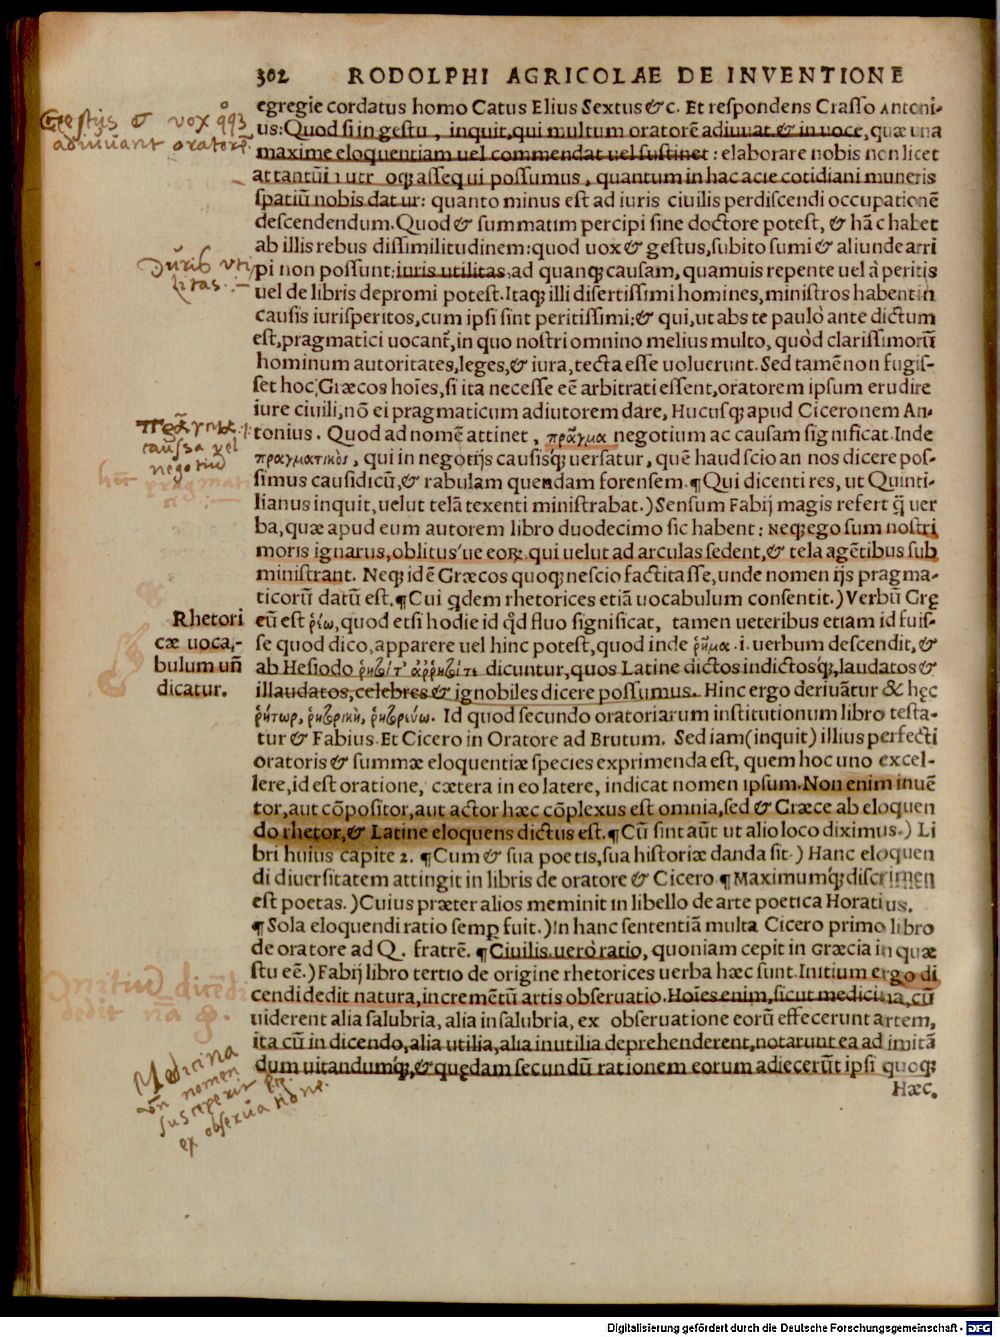 302 RODOLPHI AGRICOLAE DE INVENTIONE
egregie cordatus homo Catus Elius Sextus &c. Et respondens Crasso Antoni-
us: Quod si in gestu, inquit, qui multum oratorē adiuuat & in uoce, quæ una
maxime eloquentiam uel commendat uel sustinet: elaborare nobis non licet
at tantūi assequi possumus, quantum in hac acie cotidiani muneris
spatiū nobis datur: quanto minus est ad iuris ciuilis perdiscendi occupationē
descendendum. Quod & summatim percipi sine doctore potest, & hāc habet
ab illis rebus dissimilitudinem: quod uox & gestus, subito sumi & aliunde arri
pi non possunt: iuris utilitas, ad quanq; causam, quamuis repente uel à peritis
uel de libris depromi potest. Itaq; illi disertissimi homines, ministros habent in
causis iurisperitos, cum ipsi sint peritissimi: & qui, ut abs te paulò ante dictum
est, pragmatici uocant̄, in quo nostri omnino melius multo, quòd clarissimorū
hominum autoritates, leges, & iura, tecta esse uoluerunt. Sed tamē non fugis-
set hoc, Græcos hoīes, si ita necesse eē arbitrati essent, oratorem ipsum erudire
iure ciuili, nō ei pragmaticum adiutorem dare, Hucusq; apud Ciceronem An-
tonius. Quod ad nomē attinet, πρᾶγμα negotium ac causam significat. Inde
πραγματικὸς, qui in negotijs causisq́; uersatur, quē haud scio an nos dicere pos-
simus causidicū, & rabulam quendam forensem. ¶Qui dicenti res, ut Quinti-
lianus inquit, uelut telā texenti ministrabat.) Sensum Fabij magis refert q̄ uer
ba, quæ apud eum autorem libro duodecimo sic habent: Neq; ego sum nostri
moris ignarus, oblitus'ue eorꝝ qui uelut ad arculas sedent, & tela agētibus sub
ministrant. Neq; idē Græcos quoq; nescio factitasse, unde nomen ijs pragma-
ticorū datū est. ¶Cui q̇dem rhetorices etiā uocabulum consentit.) Verbū Grę
cū est ῥέω, quod etsi hodie id qd̓ fluo significat, tamen ueteribus etiam id fuis-
se quod dico, apparere uel hinc potest, quod inde ῥῆμα .i. uerbum descendit, &
ab Hesiodo dicuntur, quos Latine dictos indictosq́;, laudatos &
illaudatos, celebres & ignobiles dicere possumus. Hinc ergo deriuātur & hęc
ῥήτωρ, ῥητορικὴ, ῥητορεύω. Id quod secundo oratoriarum institutionum libro testa-
tur & Fabius. Et Cicero in Oratore ad Brutum. Sed iam (inquit) illius perfecti
oratoris & summæ eloquentiæ species exprimenda est, quem hoc uno excel-
lere, id est oratione, cætera in eo latere, indicat nomen ipsum. Non enim inuē
tor, aut cōpositor, aut actor hæc cōplexus est omnia, sed & Græce ab eloquen
do rhetor, & Latine eloquens dictus est. ¶Cū sint aūt ut alio loco diximus.) Li
bri huius capite 2. ¶Cum & sua poetis, sua historiæ danda sit.) Hanc eloquen
di diuersitatem attingit in libris de oratore & Cicero ¶Maximumq́; discrimen
est poetas.) Cuius præter alios meminit in libello de arte poetica Horatius.
¶Sola eloquendi ratio semp̱ fuit.) In hanc sententiā multa Cicero primo libro
de oratore ad Q. fratrē. ¶Ciuilis uerò ratio, quoniam cepit in Græcia in quæ
stu eē.) Fabij libro tertio de origine rhetorices uerba hæc sunt. Initium ergo di
cendi dedit natura, incremētū artis obseruatio. Hoīes enim, sicut medicina, cū
uiderent alia salubria, alia insalubria, ex obseruatione eorū effecerunt artem,
ita cū in dicendo, alia utilia, alia inutilia deprehenderent, notarunt ea ad imitā
dum uitandumq́;, & quędam secundū rationem eorum adiecerūt ipsi quoq;
Hæc.
Gestus & vox
adiuuant oratorē.
Juris vti
litas.
πρᾶγμα .i.
caussa vel
negotiū
pragmati
ci
Rhetori
cæ uoca-
bulum un̄
dicatur.
Initiū dicēdi
dedit nā
Medicina
nomen
ex obseruatione.
Digitalisierung gefördert durch die Deutsche Forschungsgemeinschaft - DFG